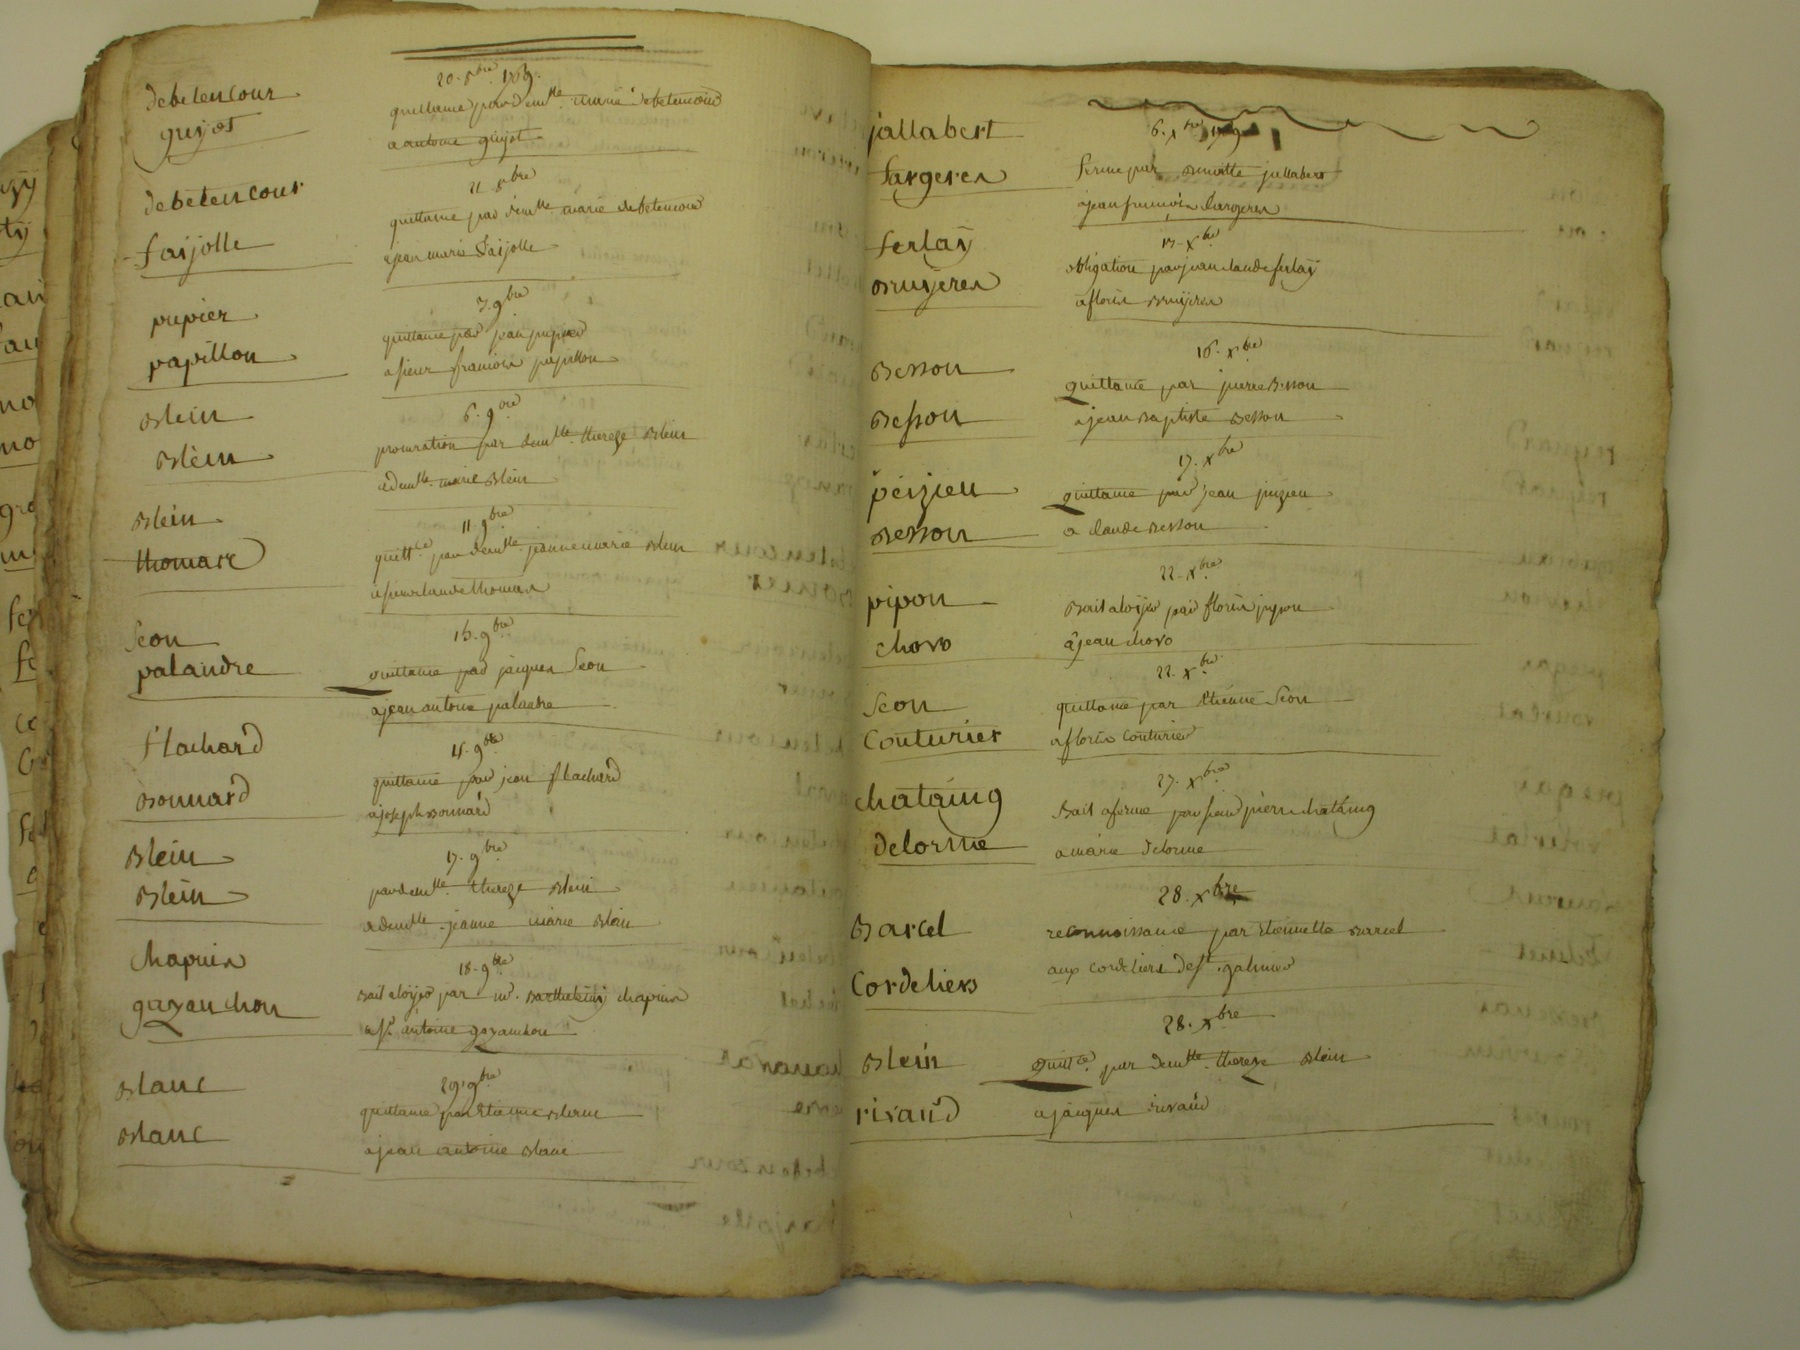 debetencour
guyot
20. 8bre 1769.
quittance par demlle. marie debetencour
a antoine guyot
debetencour
faijolle
21 8bre
quittance par demlle marie debetencour
a jean marie faijolle
pupier
papillon
7. 9bre
quittance par jean pupier
a sieur francois papillon
Blein
Blein
6. 9bre
procuration par demlle. thereze Blein
a demlle. marie Blein
Blein
thomare
11. 9bre
quittce. par demlle. jeanne marie Blein
a sieur claude thomas
Seon
palandre
quittance par jacques Seon
a jean antoine palandre
flachard
Bonnard
15. 9bre
quittance par jean flachard
a joseph Bonnard
Blein
Blein
17. 9bre
par demlle. thereze Blein
a demlle. jeanne marie Blein
Chapuis
gayanchon
18. 9bre
Bail a loÿer par mr. Barthelemy chapuis
a sr. antoine gayanchon
Blanc
Blanc
29. 9bre
quittance par Etienne Blanc
a jean antoine Blanc
jallabert
fargeres
6. xbre 1769
ferme par Benoitte jallabert
a jean francois fargeres
ferlaÿ
Bruÿeres
xbre
obligation par jean claude ferlaÿ
a floris Bruÿeres
Besson
Besson
16. xbre
quittance par pierre Besson
a jean Baptiste Besson
peizieu
Besson
17. xbre
quittance par jean peizieu
a claude Besson
pipon
chovo
22. xbre
Bail a loÿer par floris pipon
a jean chovo
Seon
Couturier
22. xbre
quittance par Etienne Seon
a floris Couturier
chataing
delorme
27. xbre
Bail a ferme par pierre chataing
a marie delorme
Barcel
Cordeliers
28. xbre
reconnoissance par Etiennette Barcel
aux cordeliers de st. galmier
Blein
rivaud
28. xbre
quittce. par demlle. thereze Blein
a jacques rivaud